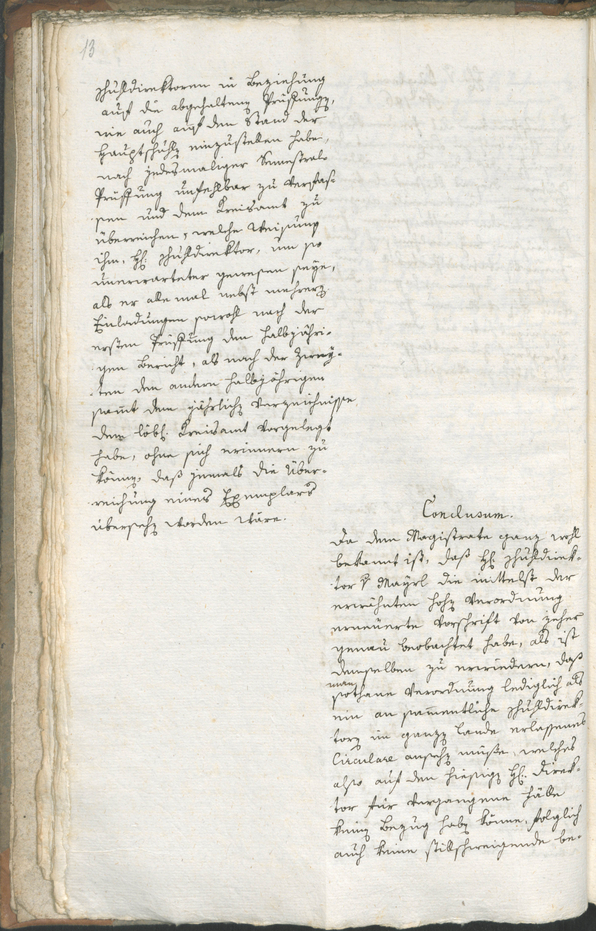 13
schuldirektoren in Beziehung
auf die abgehaltene Prüffung,
wie auch auf den Stand der
Hauptschule einzustellen habe,
nach jedesmaliger Semestral-
Prüffung unfehlbar zu verfas-
sen und dem Kreisamt zu
überreichen, welche Weisung
ihm, H. schuldirektor, um so
unerwarteter gewesen seye,
als er alle mal nebst mehrern
Einladungen sowohl nach der
ersten Prüffung den halbjähri-
gen Bericht, als nach der zwey-
ten den andern halbjährigen
samt dem jährlichen Verzeichnisse
dem löbl. Kreisamt vorgelegt
habe, ohne sich erinnern zu
können, daß jemals die Über-
reichung eines Exemplars
übersehen worden wäre.
Conclusum.
Da dem Magistrate ganz wohl
bekannt ist, daß H. schuldirek-
tor P. Mayrl die mittelst der
erwähnten hohen Verordnung
erneuerte Vorschrift von jeher
genau beobachtet habe, als ist
demselben zu erwiedern, daß
man
sothane Verordnung lediglich als
ein an sämentliche schuldirek-
toren im ganzen Lande erlassenes
Circulare ansehen müße, welches
also auf den hiesigen H. Direk-
tor für vergangene Fälle
keinen Bezug haben könne, folglich
auch keine stillschweigende be-